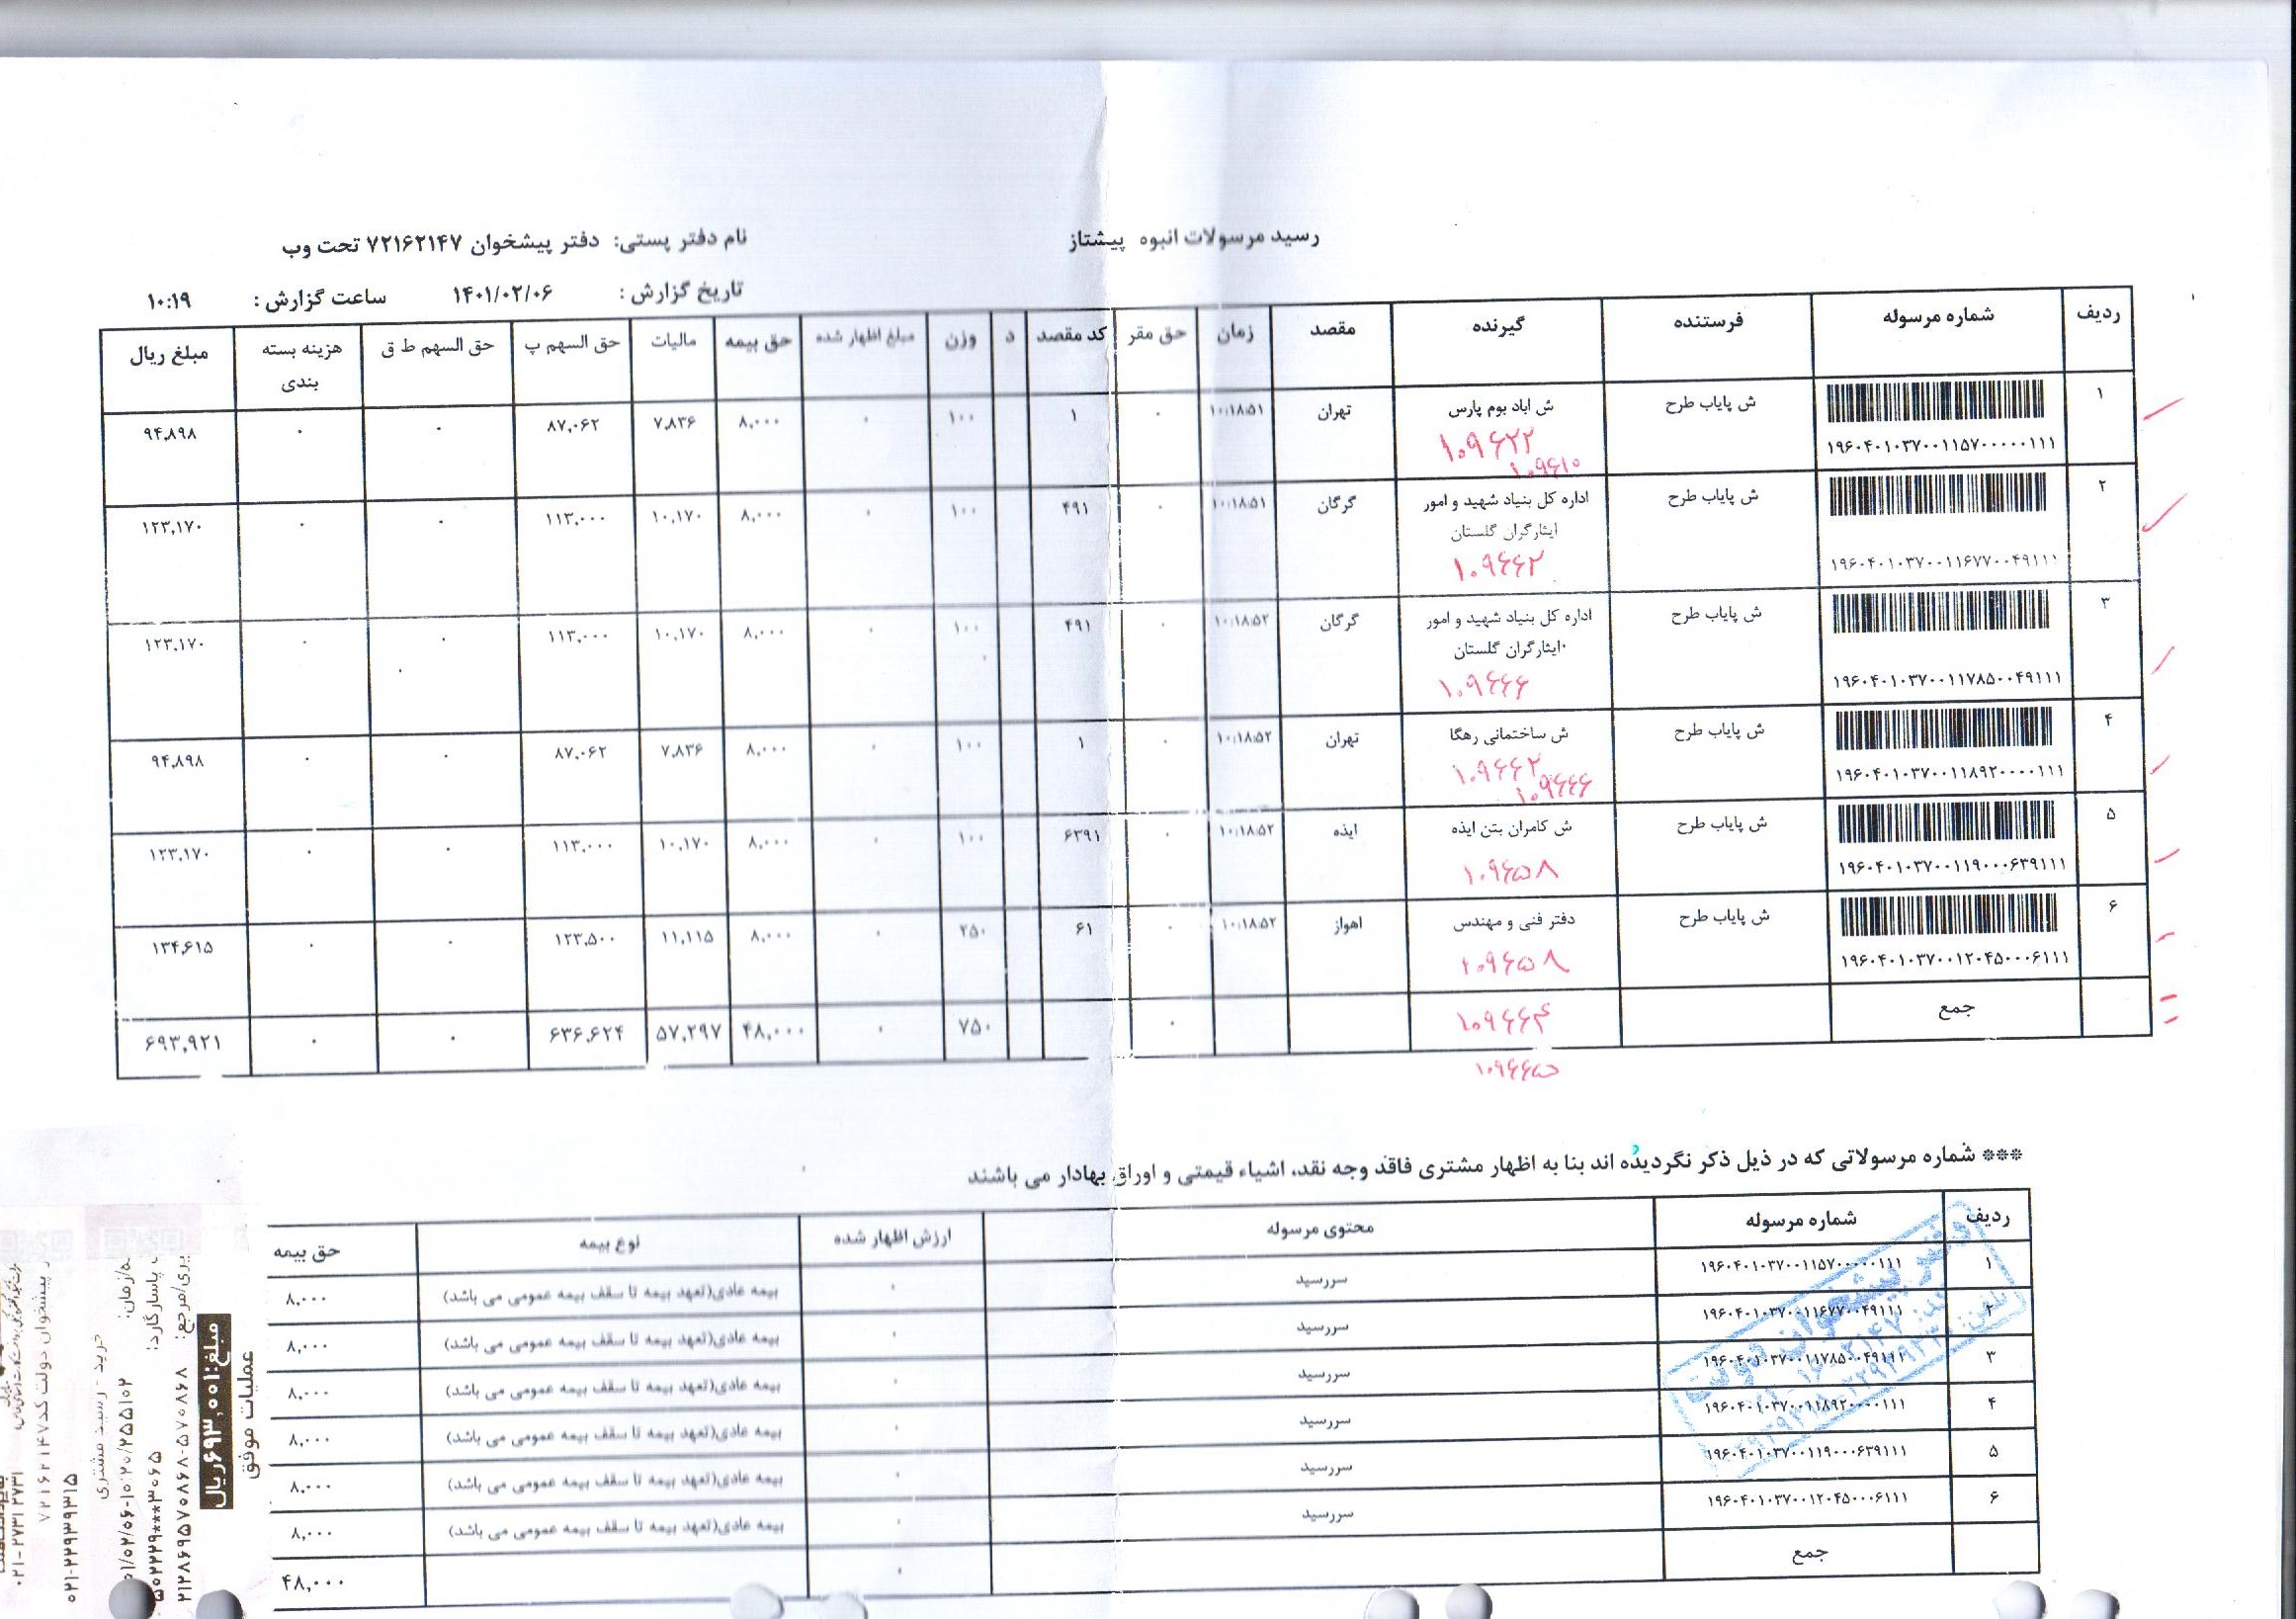 رسید مرسولات انبوه پیشتاز
نام دفتر پستی: دفتر پیشخوان ۷۲۱۶۲۱۴۷ تحت وب
تاریخ گزارش : ۱۴۰۱/۰۲/۰۶ ساعت گزارش : ۱۰:۱۹
ردیف شماره مرسوله فرستنده گیرنده مقصد زمان حق مقر کد مقصد د وزن مبلغ اظهار شده حق بیمه مالیات حق السهم پ حق السهم ط ق هزینه بسته بندی مبلغ ریال
۱ ش پایاب طرح ش اباد بوم پارس تهران ۱۰:۱۸:۵۱ ۰ ۱ ۱۰۰ ۰ ۸,۰۰۰ ۷,۸۳۶ ۸۷,۰۶۲ ۰ ۰ ۹۴,۸۹۸
۱۹۶۰۴۰۱۰۳۷۰۰۱۱۵۷۰۰۰۰۰۱۱۱
۱۰۹۶۲۲
۱۰۹۶۱۰
۲ ش پایاب طرح اداره کل بنیاد شهید و امور گرگان ۱۰:۱۸:۵۱ ۰ ۴۹۱ ۱۰۰ ۰ ۸,۰۰۰ ۱۰,۱۷۰ ۱۱۳,۰۰۰ ۰ ۰ ۱۲۳,۱۷۰
ایثارگران گلستان
۱۹۶۰۴۰۱۰۳۷۰۰۱۱۶۷۷۰۰۴۹۱۱۱
۱۰۹۶۶۲
۳ ش پایاب طرح اداره کل بنیاد شهید و امور گرگان ۱۰:۱۸:۵۲ ۰ ۴۹۱ ۱۰۰ ۰ ۸,۰۰۰ ۱۰,۱۷۰ ۱۱۳,۰۰۰ ۰ ۰ ۱۲۳,۱۷۰
ایثارگران گلستان
۱۹۶۰۴۰۱۰۳۷۰۰۱۱۷۸۵۰۰۴۹۱۱۱
۱۰۹۶۶۶
۴ ش پایاب طرح ش ساختمانی رهگا تهران ۱۰:۱۸:۵۲ ۰ ۱ ۱۰۰ ۰ ۸,۰۰۰ ۷,۸۳۶ ۸۷,۰۶۲ ۰ ۰ ۹۴,۸۹۸
۱۹۶۰۴۰۱۰۳۷۰۰۱۱۸۹۲۰۰۰۰۱۱۱
۱۰۹۶۶۲
۱۰۹۶۶۶
۵ ش پایاب طرح ش کامران بتن ایذه ایذه ۱۰:۱۸:۵۲ ۰ ۶۳۹۱ ۱۰۰ ۰ ۸,۰۰۰ ۱۰,۱۷۰ ۱۱۳,۰۰۰ ۰ ۰ ۱۲۳,۱۷۰
۱۹۶۰۴۰۱۰۳۷۰۰۱۱۹۰۰۰۶۳۹۱۱۱
۱۰۹۶۵۸
۶ ش پایاب طرح دفتر فنی و مهندس اهواز ۱۰:۱۸:۵۲ ۰ ۶۱ ۲۵۰ ۰ ۸,۰۰۰ ۱۱,۱۱۵ ۱۲۳,۵۰۰ ۰ ۰ ۱۳۴,۶۱۵
۱۹۶۰۴۰۱۰۳۷۰۰۱۲۰۴۵۰۰۰۶۱۱۱
۱۰۹۶۵۸
جمع ۰ ۷۵۰ ۰ ۴۸,۰۰۰ ۵۷,۲۹۷ ۶۳۶,۶۲۴ ۰ ۰ ۶۹۳,۹۲۱
۱۰۹۶۶۴
۱۰۹۶۶۵
*** شماره مرسولاتی که در ذیل ذکر نگردیده اند بنا به اظهار مشتری فاقد وجه نقد، اشیاء قیمتی و اوراق بهادار می باشند
ردیف شماره مرسوله محتوی مرسوله ارزش اظهار شده نوع بیمه حق بیمه
۱ ۱۹۶۰۴۰۱۰۳۷۰۰۱۱۵۷۰۰۰۰۰۱۱۱ سررسید ۰ بیمه عادی(تعهد بیمه تا سقف بیمه عمومی می باشد) ۸,۰۰۰
۲ ۱۹۶۰۴۰۱۰۳۷۰۰۱۱۶۷۷۰۰۴۹۱۱۱ سررسید ۰ بیمه عادی(تعهد بیمه تا سقف بیمه عمومی می باشد) ۸,۰۰۰
۳ ۱۹۶۰۴۰۱۰۳۷۰۰۱۱۷۸۵۰۰۴۹۱۱۱ سررسید ۰ بیمه عادی(تعهد بیمه تا سقف بیمه عمومی می باشد) ۸,۰۰۰
۴ ۱۹۶۰۴۰۱۰۳۷۰۰۱۱۸۹۲۰۰۰۰۱۱۱ سررسید ۰ بیمه عادی(تعهد بیمه تا سقف بیمه عمومی می باشد) ۸,۰۰۰
۵ ۱۹۶۰۴۰۱۰۳۷۰۰۱۱۹۰۰۰۶۳۹۱۱۱ سررسید ۰ بیمه عادی(تعهد بیمه تا سقف بیمه عمومی می باشد) ۸,۰۰۰
۶ ۱۹۶۰۴۰۱۰۳۷۰۰۱۲۰۴۵۰۰۰۶۱۱۱ سررسید ۰ بیمه عادی(تعهد بیمه تا سقف بیمه عمومی می باشد) ۸,۰۰۰
جمع ۰ ۴۸,۰۰۰
دفتر پیشخوان دولت
ر پیشخوان دولت کد۷۲۱۶۲۱۴۷
۰۲۱-۲۲۹۳۹۳۱۵
خرید - رسید مشتری
ه/زمان: ۰۱/۰۲/۰۶-۱۰:۲۰/۲۵۵۱۰۲
پاسارگاد: ۵۰۲۲۲۹***۳۰۶۵
یری/مرجع: ۲۱۲۸۶۹۵۷۰۸۶۸-۵۷۰۸۶۸
مبلغ:۶۹۳,۰۰۱ریال
عملیات موفق